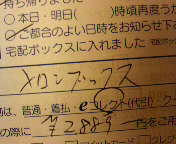 持ち帰りました
○本日・明日( )時頃再度うか
○ご都合のよい日時をお知らせ下
宅配ボックスに入れました
メロンブックス
は、普通・着払・e-コレクト(代引)・クー
の際に ￥2889 円をご用